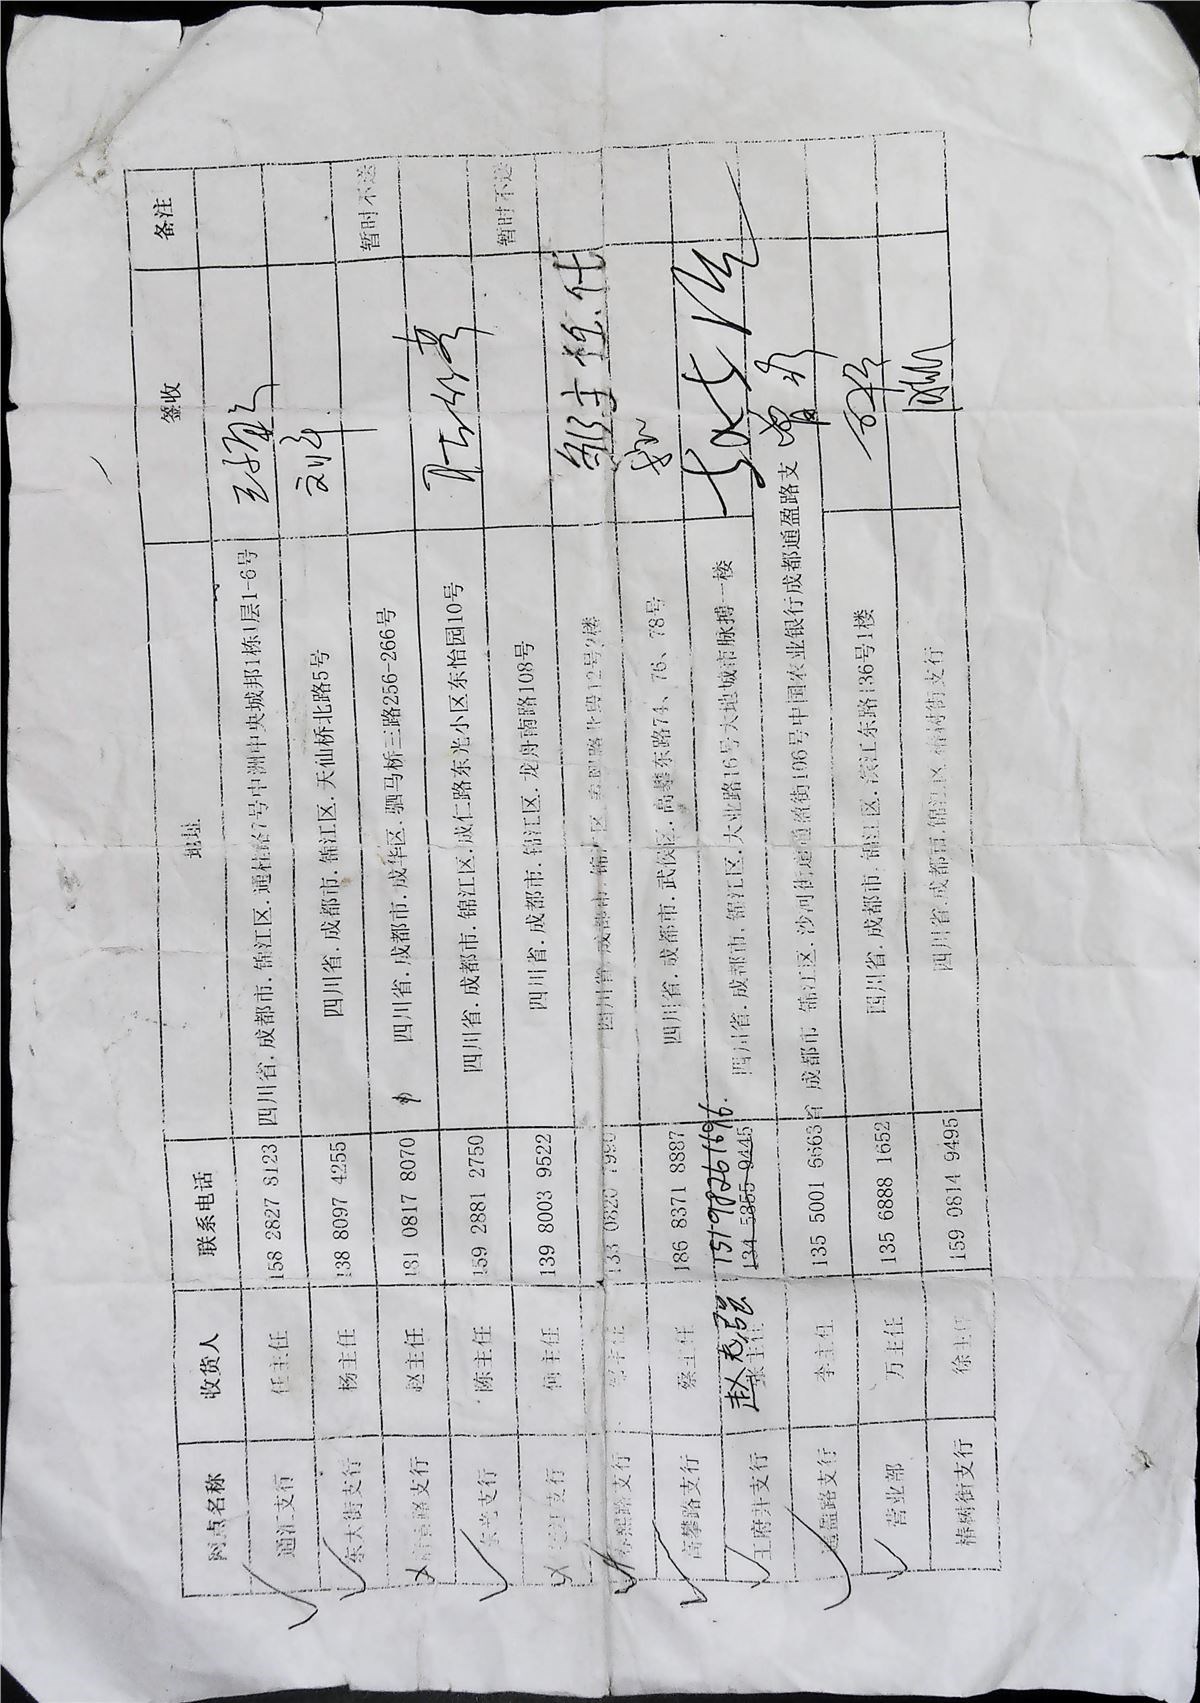 网点名称 收货人 联系电话 地址 签收 备注
通汇支行 任主任 158 2827 8123 四川省.成都市.锦江区.通桂路7号中洲中央城邦1栋1层1-6号
东大街支行 杨主任 138 8097 4255 四川省.成都市.锦江区.天仙桥北路5号 刘军
路支行 赵主任 181 0817 8070 四川省.成都市.成华区.驷马桥三路256-266号 暂时不送
东光支行 陈主任 159 2881 2750 四川省.成都市.锦江区.成仁路东光小区东怡园10号
支行 何主任 139 8003 9522 四川省.成都市.锦江区.龙舟南路108号 暂时不送
春熙路支行 邹主任 133 0820 四川省.成都市.锦江区.春熙路北段12号2楼 邹主任
高攀路支行 蔡主任 186 8371 8887 四川省.成都市.武侯区.高攀东路74、76、78号
王府井支行 赵志强 15198261696. 134 5855 9445 四川省.成都市.锦江区.大业路16号大地城市脉搏一楼
通盈路支行 李主任 135 5001 6663 省 成都市 锦江区.沙河街道通盈街106号中国农业银行成都通盈路支 曾
营业部 万主任 135 6888 1652 四川省.成都市.锦江区.滨江东路136号1楼
椿树街支行 徐主任 159 0814 9495 四川省.成都市.锦江区.椿树街支行